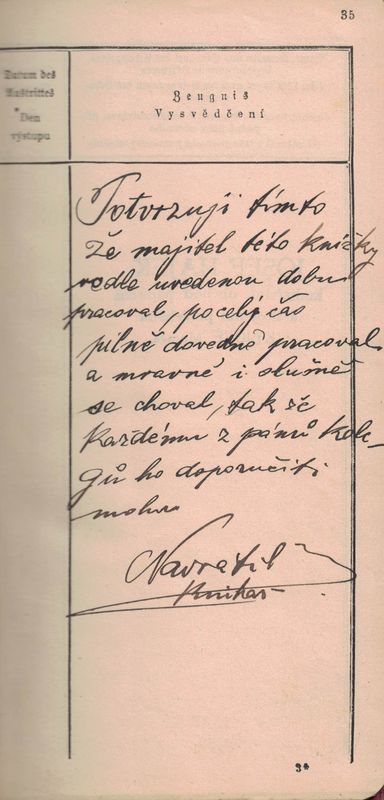 35
Datum des
Austrittes
Den
výstupu
Zeugnis
Vysvědčení
Potvrzuji tímto
že majitel této knížky
vedle uvedenou dobu
pracoval, po celý čas
pilně dovedně pracoval
a mravně i slušně
se choval, tak že
každému z pánů kole-
gů ho doporučiti
mohu
Navrátil
Knihař
3*